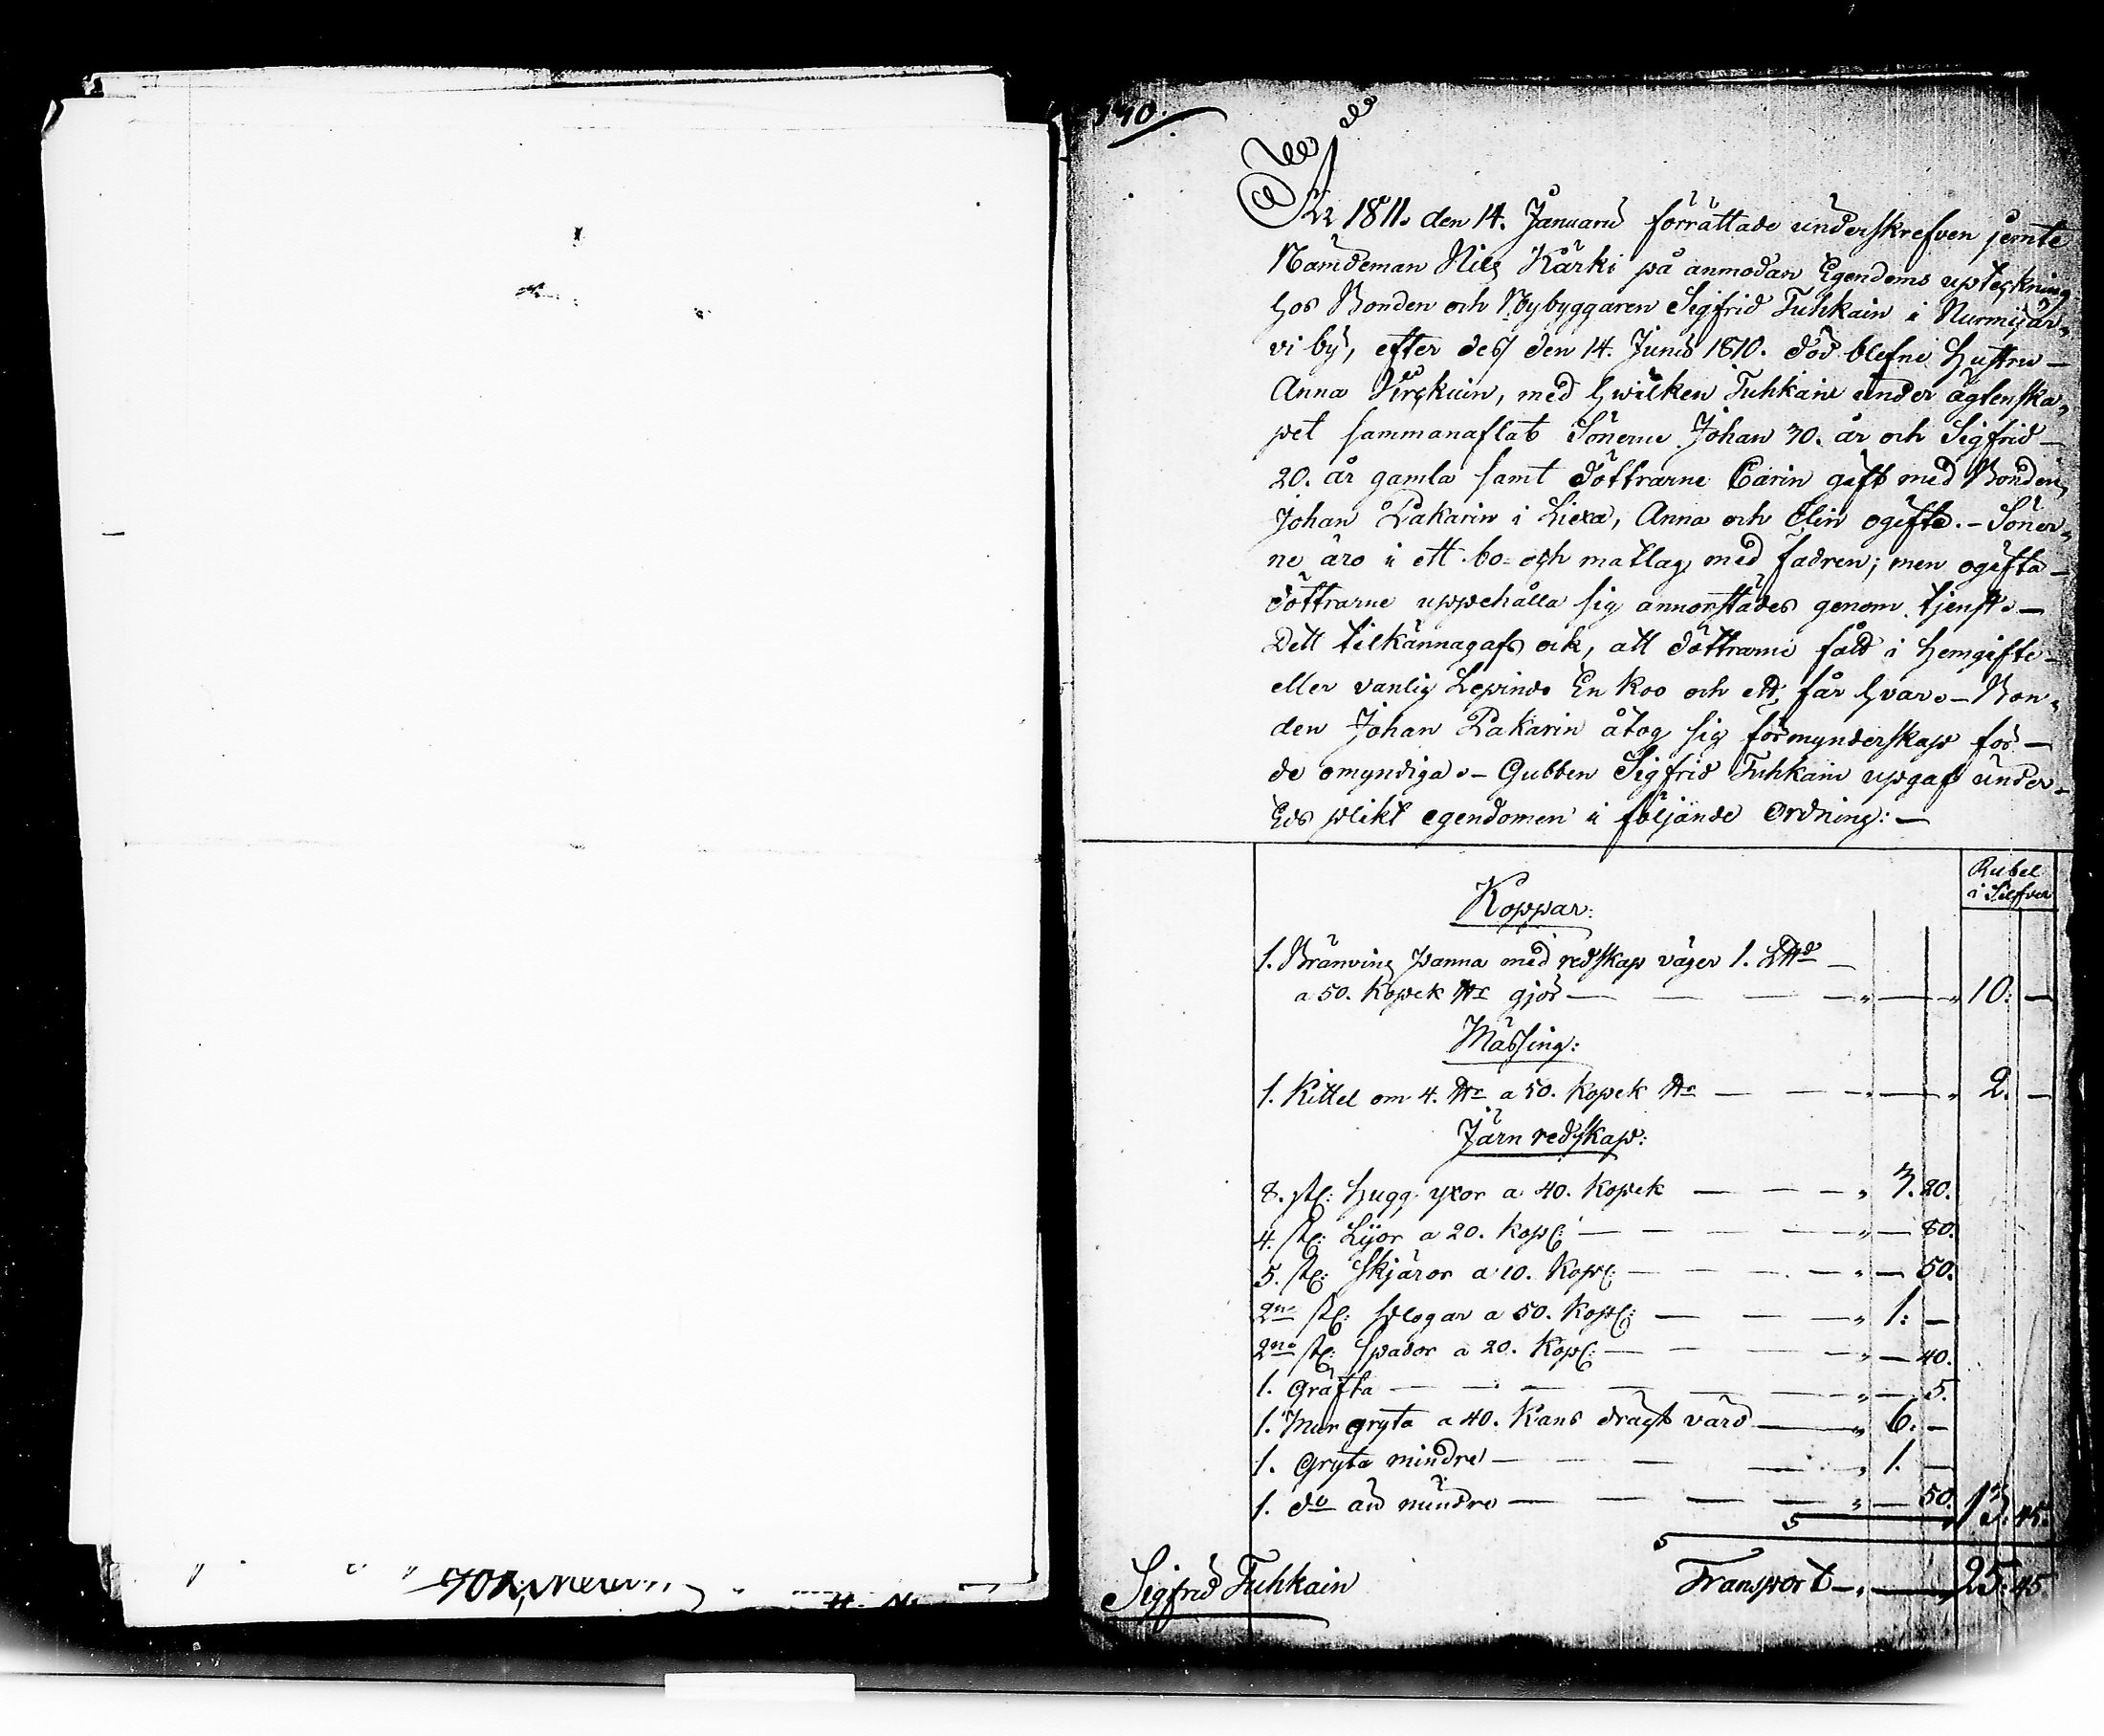 140.
År 1811. den 14. Januarii förrättade underskrefven jemte
Nämdeman Nils Kärki på anmodan Egendoms upteckning
hos Bonden och Nybyggaren Sigfrid Tuhkain i Nurmijär„
vi by, efter dess den 14. Junii 1810. död blefne Hustru –
Anna Kirckuin, med hwilken Tuhkain under ägtenska„
pet sammanaflat Sönerne Johan 30. år och Sigfrid –
20. år gamla samt döttrarne Carin gift med Bonden
Johan Pakarin i Liexa, Anna och Elin ogifte. – Söner„
ne äro i ett bo= och matlag med fadren; men ogifta –
döttrarne uppehålla sig annorstädes genom tjenst. –
Dett tilkännagafs ock, att döttrarne fådt i hemgifte –
eller vanlig Lepinds En Koo och ett får hvar. – Bon„
den Johan Pakarin åtog sig förmynderskap för –
de omyndiga. – Gubben Sigfrid Tuhkain upgaf under –
Eds plikt egendomen i följande Ordning: –
Rubel
i Silfver
Koppar:
1. Bränvins panna med redskap väger 1. L℔d –
a 50. Kopek ℔r gjör – – – – „ – „ 10: –
Mässing:
1. Kittel om 4. ℔r a 50. Kopek ℔r – – – „ – „ 2. –
Järn redskap:
8. st: Hugg yxor a 40. Kopek – – – „ 3. 20.
4. st: Lijor a 20. Kop: – – – – „ – 80.
5. st: Skjäror a 10. Kop: – – – – „ – 50.
2ne st: plogar a 50. Kop: – – – „ 1: –
2ne st: spador a 20. Kop: – – – – „ – 40.
1. Gräfta – – – – – – „ – 5.
1. Mur gryta a 40. Kans drägt värd – „ 6. –
1. Gryta mindre – – – – „ 1. –
1. do än mindre – – – – – „ – 50. 13: 45.
Sigfrid Tuhkain Transport – „ – „ 25: 45